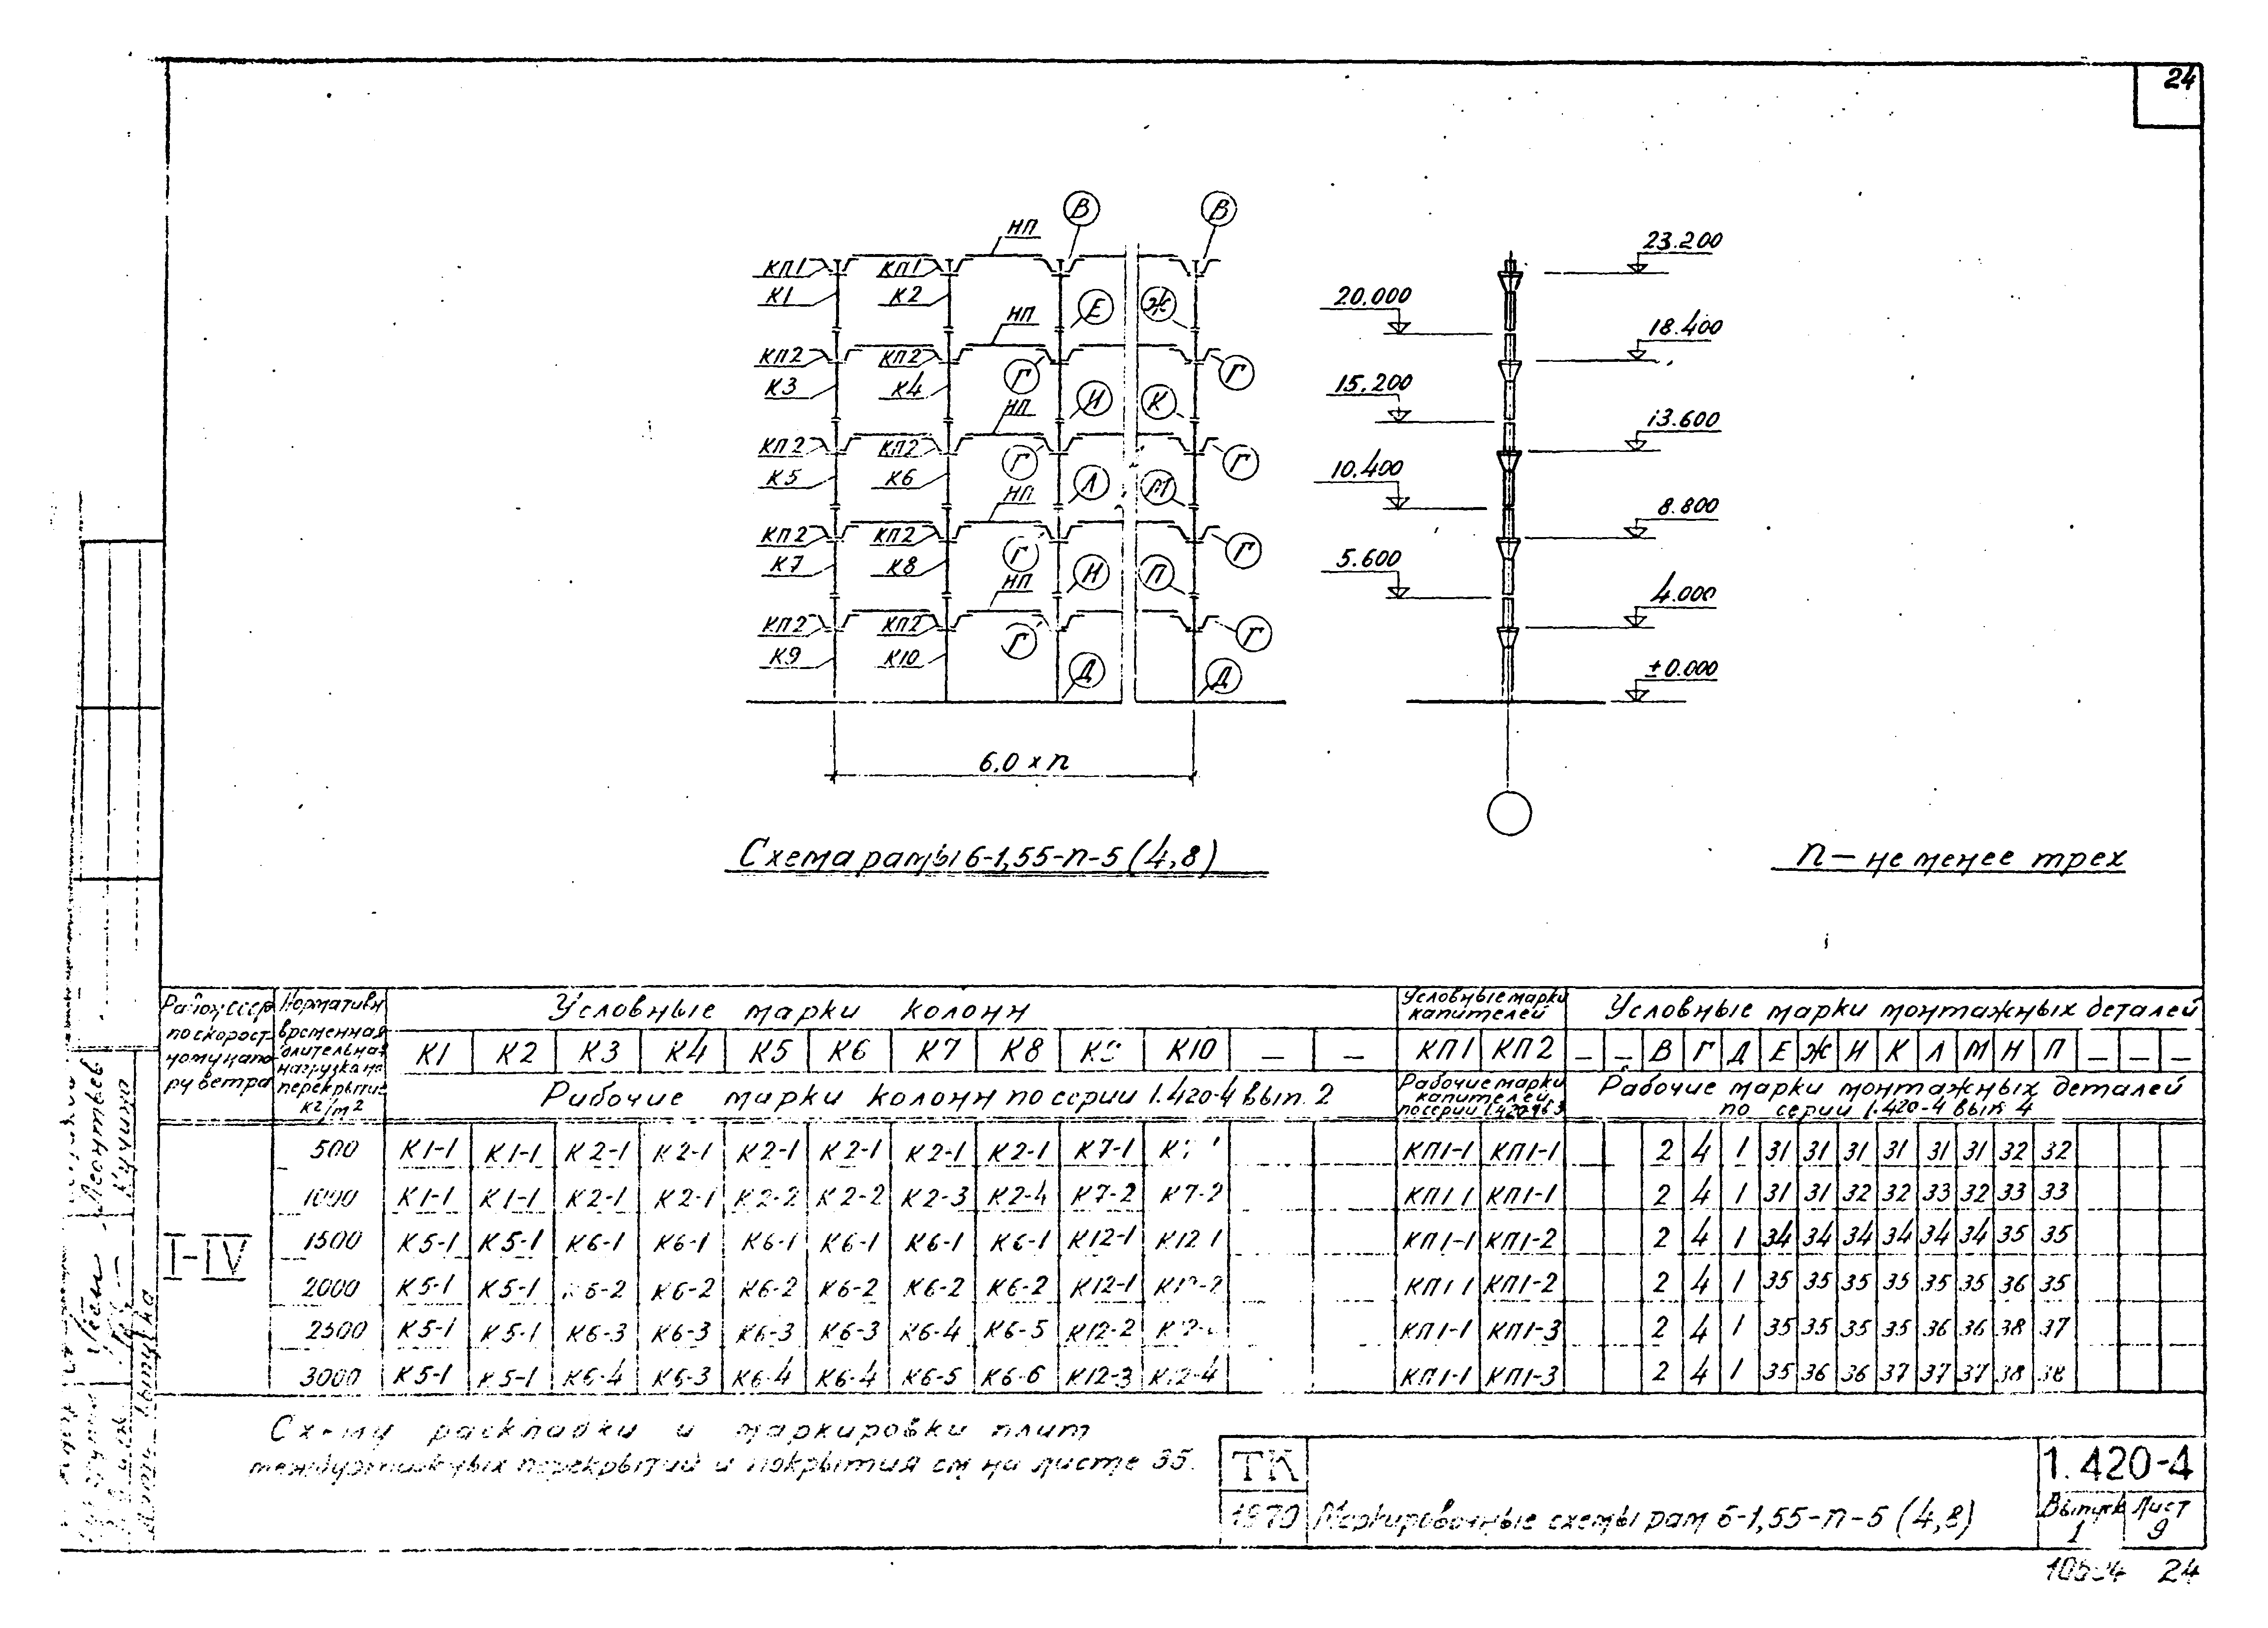 24
В В
НП
23.200
КП1 КП1
К1 К2
Е Ж
20.000
НП
18.400
КП2 КП2
Г Г
К3 К4
15.200
НП И К
13.600
КП2 КП2
Г Г
К5 К6
10.400
НП Л М
8.800
КП2 КП2
Г Г
К7 К8
5.600
НП Н П
4.000
КП2 КП2
Г Г
К9 К10
±0.000
Д Д
6,0 х п
Схема рамы 6-1,55-п-5 (4,8)
п — не менее трех
Район СССР по скоростному напору ветра
Нормативн временная длительная нагрузка на перекрытие кг/м2
Условные марки колонн
Условные марки капителей
Условные марки монтажных деталей
К1 К2 К3 К4 К5 К6 К7 К8 К10 — — КП1 КП2 — — В Г Д Е Ж И К Л М Н П — — —
Рабочие марки колонн по серии 1.420-4 вып. 2
Рабочие марки капителей по серии
Рабочие марки монтажных деталей
по серии 1.420-4 вып. 4
I-IV
500 К1-1 К1-1 К2-1 К2-1 К2-1 К2-1 К2-1 К2-1 К7-1 КП1-1 КП1-1 2 4 1 31 31 31 31 31 31 32 32
1000 К1-1 К1-1 К2-1 К2-1 К2-2 К2-2 К2-3 К2-4 К7-2 К7-2 КП1 1 КП1-1 2 4 1 31 31 32 32 33 32 33 33
1500 К5-1 К5-1 К6-1 К6-1 К6-1 К6-1 К6-1 К6-1 К12-1 К12 1 КП1-1 КП1-2 2 4 1 34 34 34 34 34 34 35 35
2000 К5-1 К5-1 К6-2 К6-2 К6-2 К6-2 К6-2 К6-2 К12-1 КП1 1 КП1-2 2 4 1 35 35 35 35 35 35 36 35
2500 К5-1 К5-1 К6-3 К6-3 К6-3 К6-3 К6-4 К6-5 К12-2 КП1-1 КП1-3 2 4 1 35 35 35 35 36 36 38 37
3000 К5-1 К5-1 К6-4 К6-3 К6-4 К6-4 К6-5 К6-6 К12-3 К12-4 КП1-1 КП1-3 2 4 1 35 36 36 37 37 37 38 38
Схему раскладки и маркировки плит
междуэтажных перекрытий и покрытия см на листе 35.
ТК
1970
Маркировочные схемы рам 6-1,55-п-5 (4,8)
1.420-4
Выпуск 1
Лист 9
24
Леонтьев
Кичина